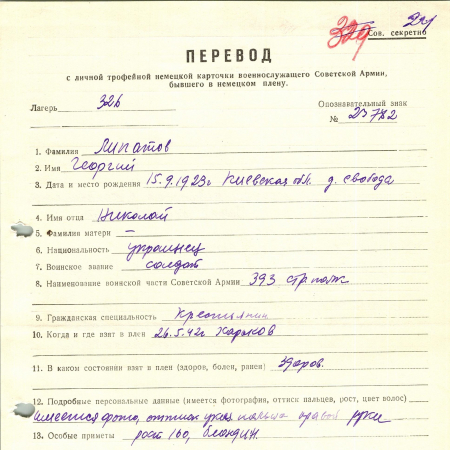 329
Сов. секретно
ПЕРЕВОД
с личной трофейной немецкой карточки военнослужащего Советской Армии,
бывшего в немецком плену.
Лагерь 326 Опознавательный знак
№ 23782
1. Фамилия Липатов
2. Имя Георгий
3. Дата и место рождения 15.9.1923г Киевская обл. д. Свобода
4. Имя отца Николай
5. Фамилия матери —
6. Национальность украинец
7. Воинское звание солдат
8. Наименование воинской части Советской Армии 393 стр полк
9. Гражданская специальность Крестьянин
10. Когда и где взят в плен 26.5.42г Харьков
11. В каком состоянии взят в плен (здоров, болен, ранен) Здоров.
12. Подробные персональные данные (имеется фотография, оттиск пальцев, рост, цвет волос)
имеется фото, оттиск пальца правой руки
13. Особые приметы рост 160, блондин.